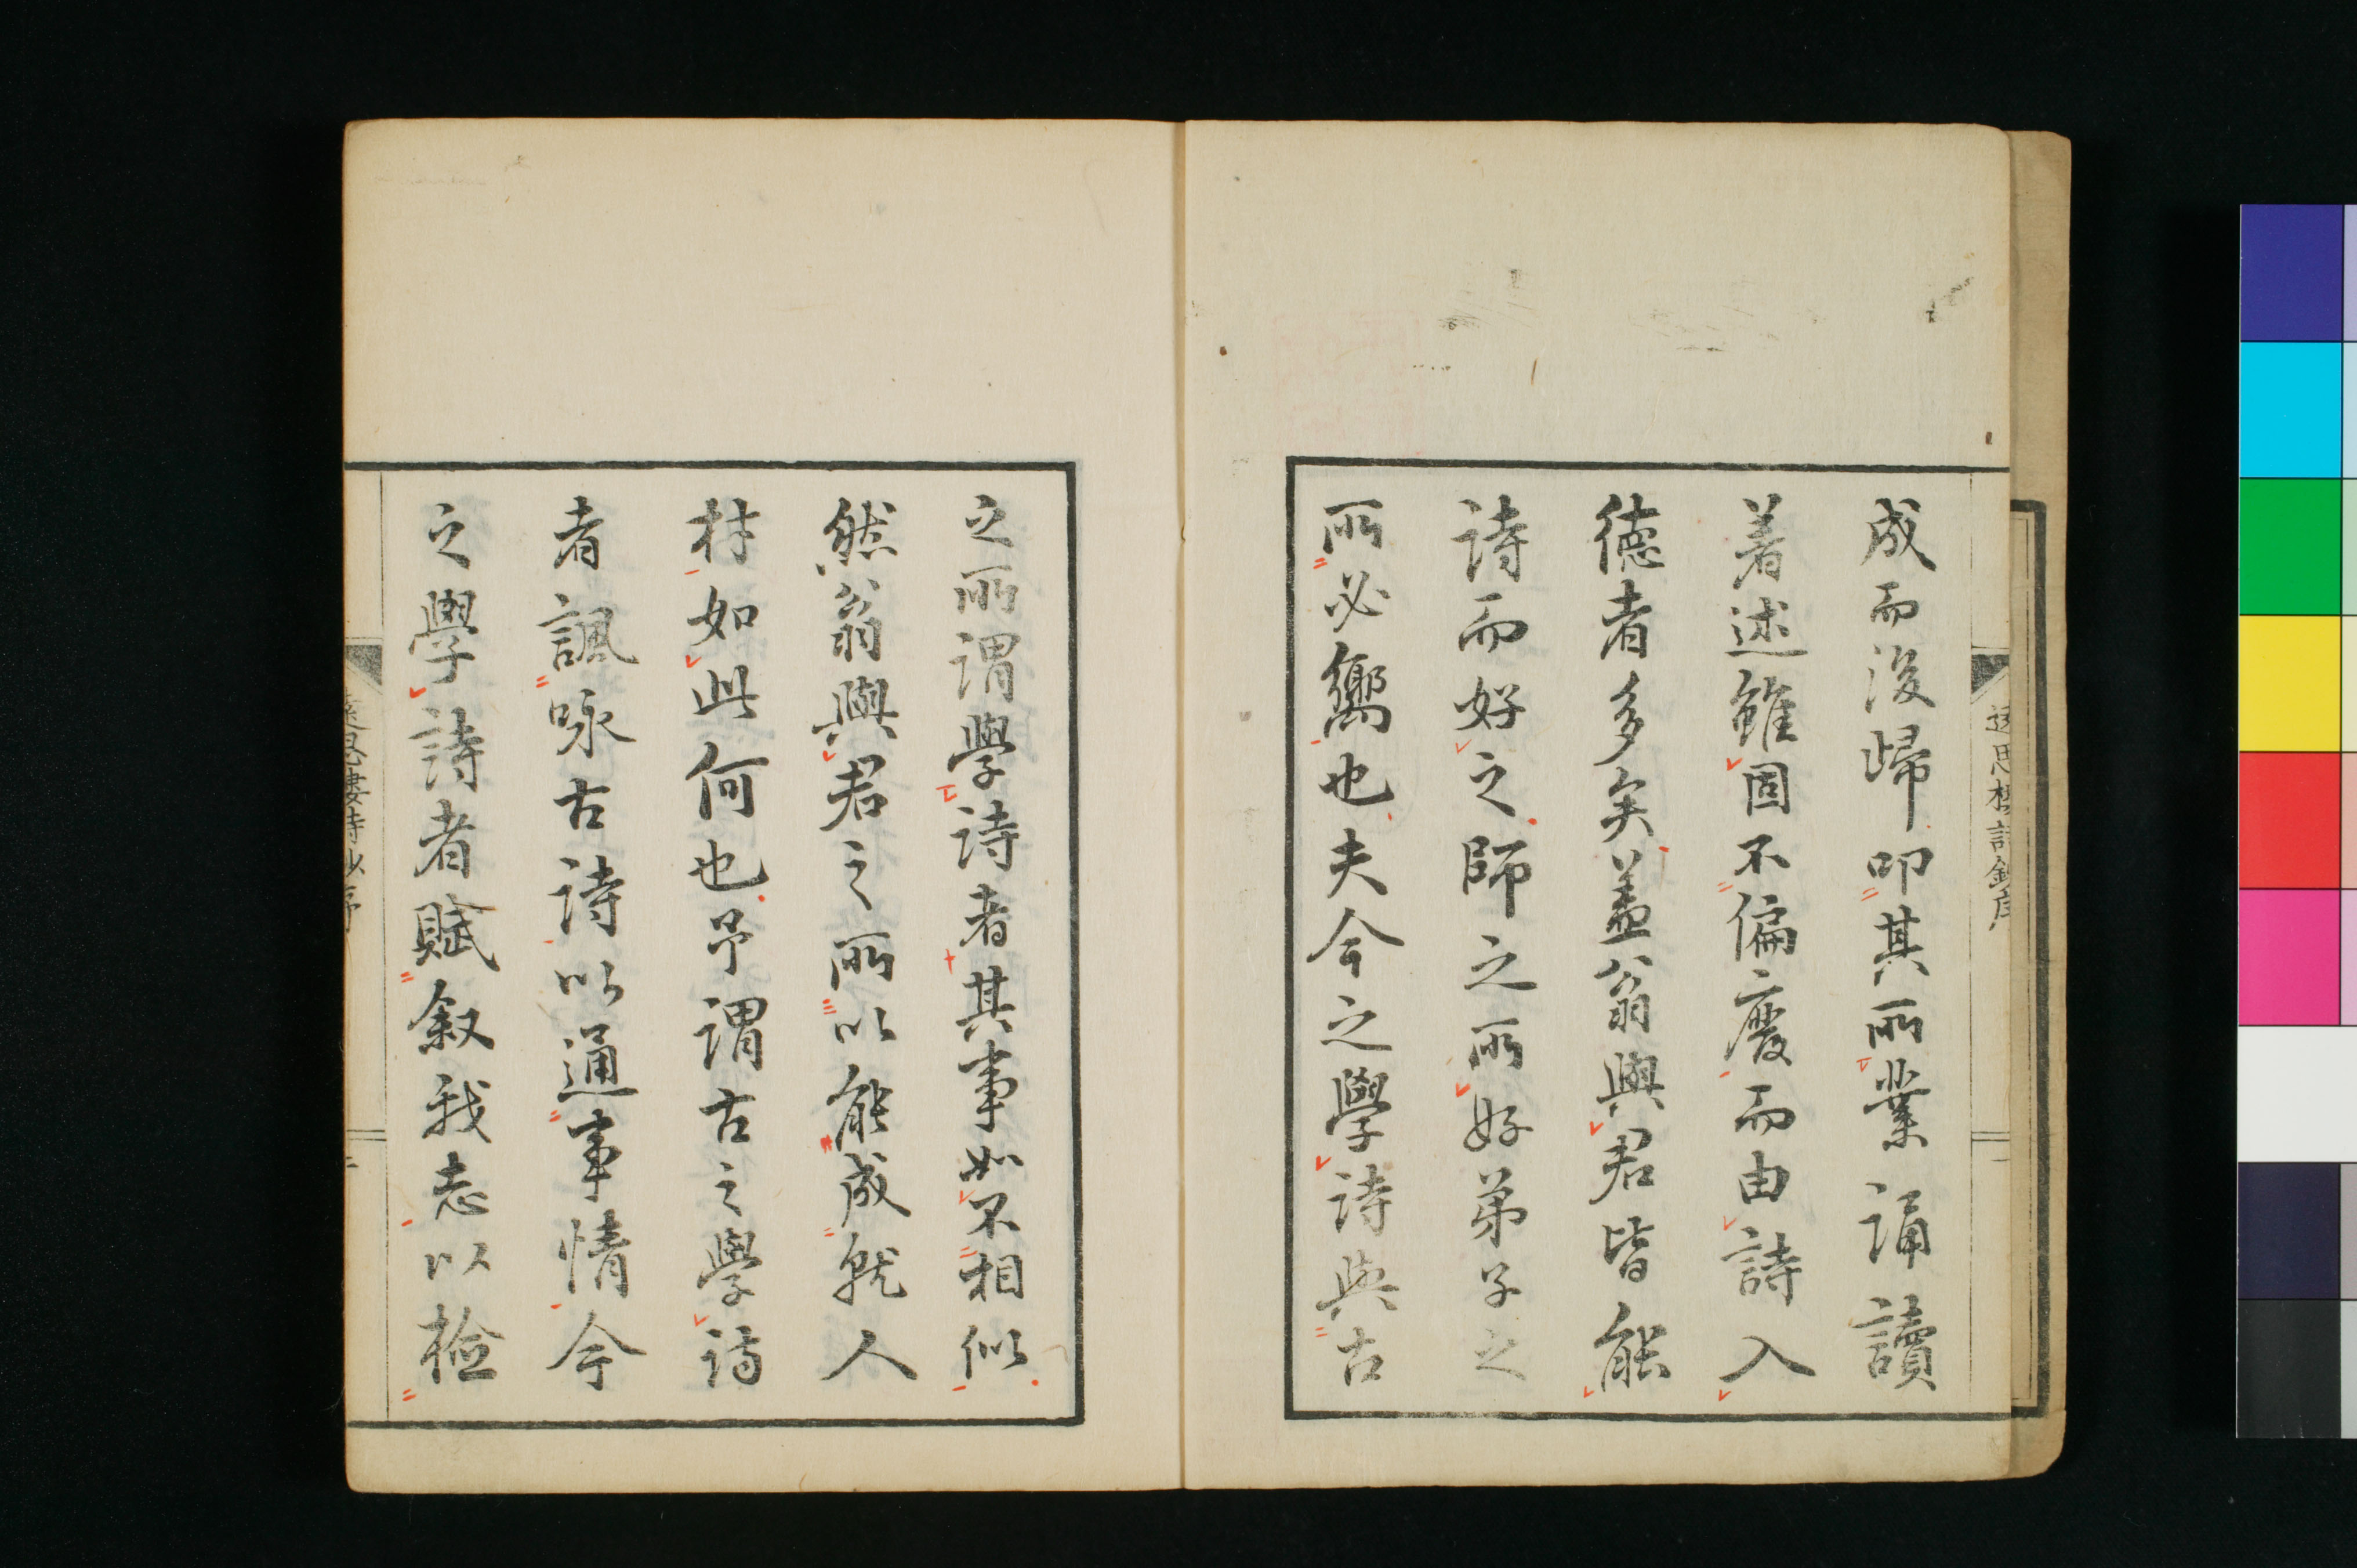 成而後歸叩其所業誦讀
著述雖固不偏廢而由詩入
德者多矣蓋翁與君皆能
詩而好之師之所好弟子之
所必嚮也夫今之學詩與古
之所謂學詩者其事如不相似
然翁與君之所以能成就人
材如此何也予謂古之學詩
者諷咏古詩以通事情今
之學詩者賦叙我志以檢
遠思樓詩鈔序